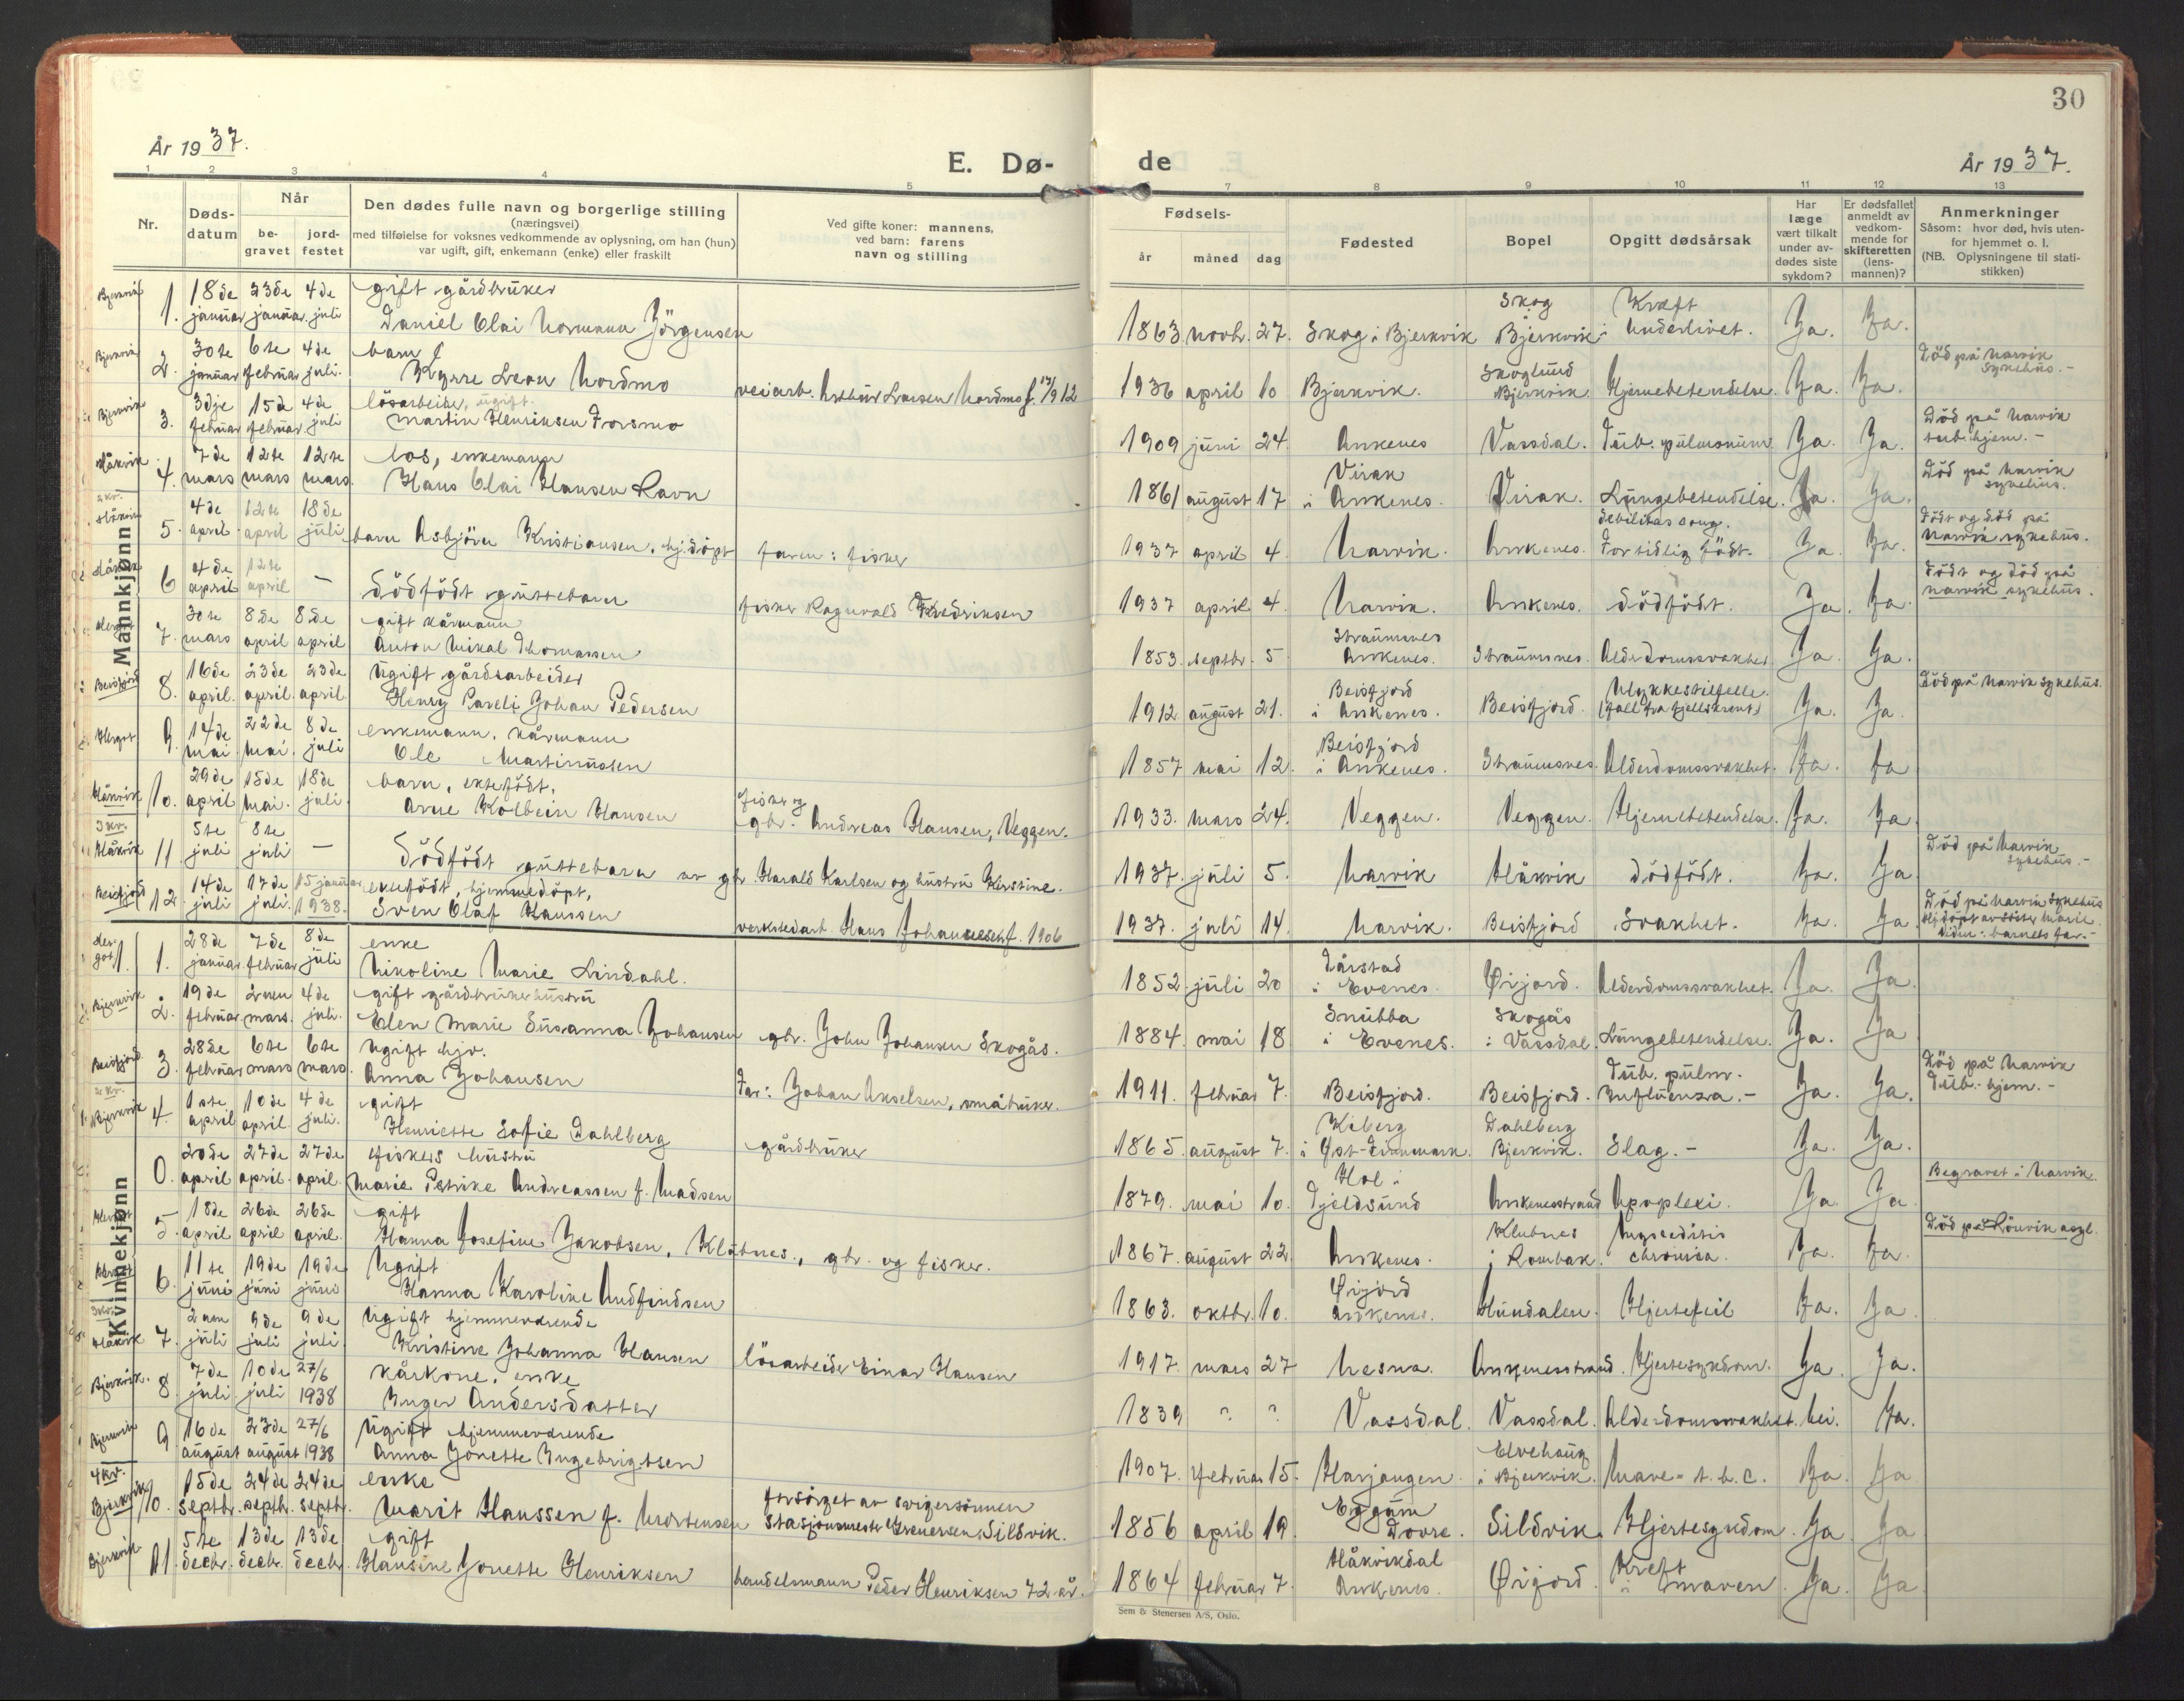 30
År 1937.
E. Dø-
de
År 1937.
1 2 3 4 5 7 8 9 10 11 12 13
Nr.
Døds-
datum
Når
be-
gravet
jord-
festet
Den dødes fulle navn og borgerlige stilling
(næringsvei)
med tilføielse for voksnes vedkommende av oplysning, om han (hun)
var ugift, gift, enkemann (enke) eller fraskilt
Ved gifte koner: mannens,
ved barn: farens
navn og stilling
Fødsels-
år måned dag
Fødested
Bopel
Opgitt dødsårsak
Har
læge
vært tilkalt
under av-
dødes siste
sykdom?
Er dødsfallet
anmeldt av
vedkom-
mende for
skifteretten
(lens-
mannen)?
Anmerkninger
Såsom: hvor død, hvis uten-
for hjemmet o. l.
(NB. Oplysningene til stati-
stikken)
Mannkjønn
Bjerkvik 1. 18de januar 23de januar 4de juli gift gårdbruker
Daniel Olai Normann Jörgensen 1863 novbr. 27. Skog i Bjerkvik Skog Bjerkvik Kreft i Underlivet. Ja. Ja.
Bjerkvik 2. 30te januar 6te februar 4de juli barn
Kyrre Leon Nordmo veiarb. Arthur Larsen Nordmo f. 1912 1936 april 10 Bjerkvik. Skoglund Bjerkvik. Hjernebetendelse. Ja. Ja. Död på Narvik sykehus.-
Bjerkvik 3. 3dje februar 15de februar 4de juli lösarbeider, ugift.
Martin Henriksen Forsmo 1909 juni 24. Ankenes Vassdal. Tub. pulmonum Ja. Ja. Död på Narvik tub.hjem.-
Håkvik 4. 7de mars 12te mars 12te mars. los, enkemann
Hans Olai Hansen Ravn 1861 august 17 Virak i Ankenes. Virak. Lungebetendelse. Ja. Ja. Död på Narvik sykehus.
2 kv. Håkvik 5. 4de april 12te april 18de juli barn Asbjörn Kristiansen, hj.döpt faren: fisker 1937 april 4. Narvik. Ankenes. debilitas cong. For tidlig födt. Ja. Ja. Födt og död på Narvik sykehus.
Håkvik 6 4de april 12te april — Dödfödt guttebarn fisker Ragnvald Fredriksen 1937 april 4. Narvik. Ankenes. Dödfödt. Ja. Ja. Födt og död på Narvik sykehus.
7. 30te mars 8de april 8de april gift kårmann
Anton Mikal Thomassen 1853. septbr. 5. Straumsnes Ankenes. Straumsnes. Alderdomssvakhet Ja Ja.
Beisfjord 8. 16de april 23de april. 23de april. Ugift gårdsarbeider
Henry Pareli Johan Pedersen 1912 august 21. Beisfjord i Ankenes. Beisfjord. Ulykkestilfelle. Ja. Ja. Död på Narvik sykehus.
9. 14de mai 22de mai 8de juli enkemann, kårmann
Ole Martinussen 1857 mai 12. Beisfjord i Ankenes. Straumsnes. Alderdomssvakhet. Ja. Ja
Håkvik 10. 29de april 15de mai. 18de juli barn, ektefödt,
Arne Kolbein Hansen fisker og gbr. Andreas Hansen, Veggen. 1933. mars 24. Veggen. Veggen. Hjernebetendelse. Ja. Ja.
3 kv. Håkvik 11. 5te juli 8te juli — Dödfödt guttebarn av gbr. Harald Karlsen og hustru Kirstine. 1937. juli 5. Narvik Håkvik Dödfödt. Ja. Ja Död på Narvik sykehus.-
Beisfjord 12. 14de juli 17de juli. 15 januar 1938. hjemmedöpt,
Sven Olaf Hanssen verkstedarb. Hans Johannesen f. 1906 1937. juli 14. Narvik. Beisfjord Svakhet. Ja. Ja Död på Narvik sykehus
Kvinnekjønn
1. 28de januar 7de februar 8de juli enke
Nikoline Marie Lindahl. 1852 juli 20 Lårstad i Evenes. Örjord. Alderdomssvakhet. Ja. Ja.
Bjerkvik 2. 19de februar 2nen mars. 4de juli. gift gårdbrukerhustru
Elen Marie Susanna Johansen gbr. John Johansen Skogås. 1884. mai 18 Snubba i Evenes. Skogås i Vassdal Lungebetendelse. Ja. Ja
Beisfjord 3. 28de februar 6te mars 6te mars. Ugift hjv.
Anna Johansen Far: Johan Akselsen, småbruker. 1911. februar 7. Beisfjord. Beisfjord. Tub. pulm. Influenza.- Ja. Ja. Död på Narvik Tub.-hjem.-
2 kv. Bjerkvik 4. 1ste april 10de april. 4de juli. gift
Henriette Sofie Dahlberg gårdbruker 1865. august 7. Kiberg i Öst-Finnmark. Dahlberg Bjerkvik. Slag.- Ja. Ja.
0. 20de april 27de april. 27de april. fiskers hustru
Marie Petrike Andreassen f. Madsen 1879. mai 10. Hol i Tjeldsund Ankenesstrand Apoplexi. Ja. Ja. Begravet i Narvik.
5. 18de april 26de april 26de april. gift
Hanna Josefine Jakobsen, Klubnes., gbr. og fisker. 1867. august 22. Ankenes. Klubnes i Rombak. chronica. Ja. Ja. Död på Rönvik asyl.
6. 11te juni 19de juni 19de juni Ugift
Hanna Karoline Andfindsen 1863. oktbr. 10. Örjord Ankenes. Hundalen. Hjertefeil Ja. Ja.
3 kv. Håkvik 7. 2nen juli 9de juli 9de juli Ugift hjemmeværende
Kristine Johanna Hansen lösarbeider Einar Hansen 1917. mars 27 Nesna. Ankenesstrand. Hjertesykdom. Ja. Ja.
Bjerkvik. 8. 7de juli 10de juli 27/6 1938 kårkone, enke
Inger Andersdatter 1839 ? ? Vassdal. Vassdal. Alderdomssvakhet. Nei. Ja.
Bjerkvik 9. 16de august 23de august 27/6 1938 Ugift hjemmeværende
Anna Jonette Ingebrigtsen 1907. februar 15. Harjangen. Elvehaug i Bjerkvik. Mave- t.b.c. Ja. Ja
4 kv. Bjerkvik 10. 15de septbr. 24de septbr. 24de septbr. enke
Marit Hanssen f. Mortensen forsörget av svigersönnen stasjonsmester Grenersen Sildvik. 1856 april 19. Eggum Dovre. Sildvik. Hjertesykdom. Ja. Ja
Bjerkvik 11. 5te decbr. 13de decbr. 13de decbr. gift
Hansine Jonette Henriksen handelsmann Peder Henriksen 72 år. 1864 februar 7. Håkvikdal Ankenes. Örjord. Kreft i maven. Ja. Ja
Sem & Stenersen A/S, Oslo.